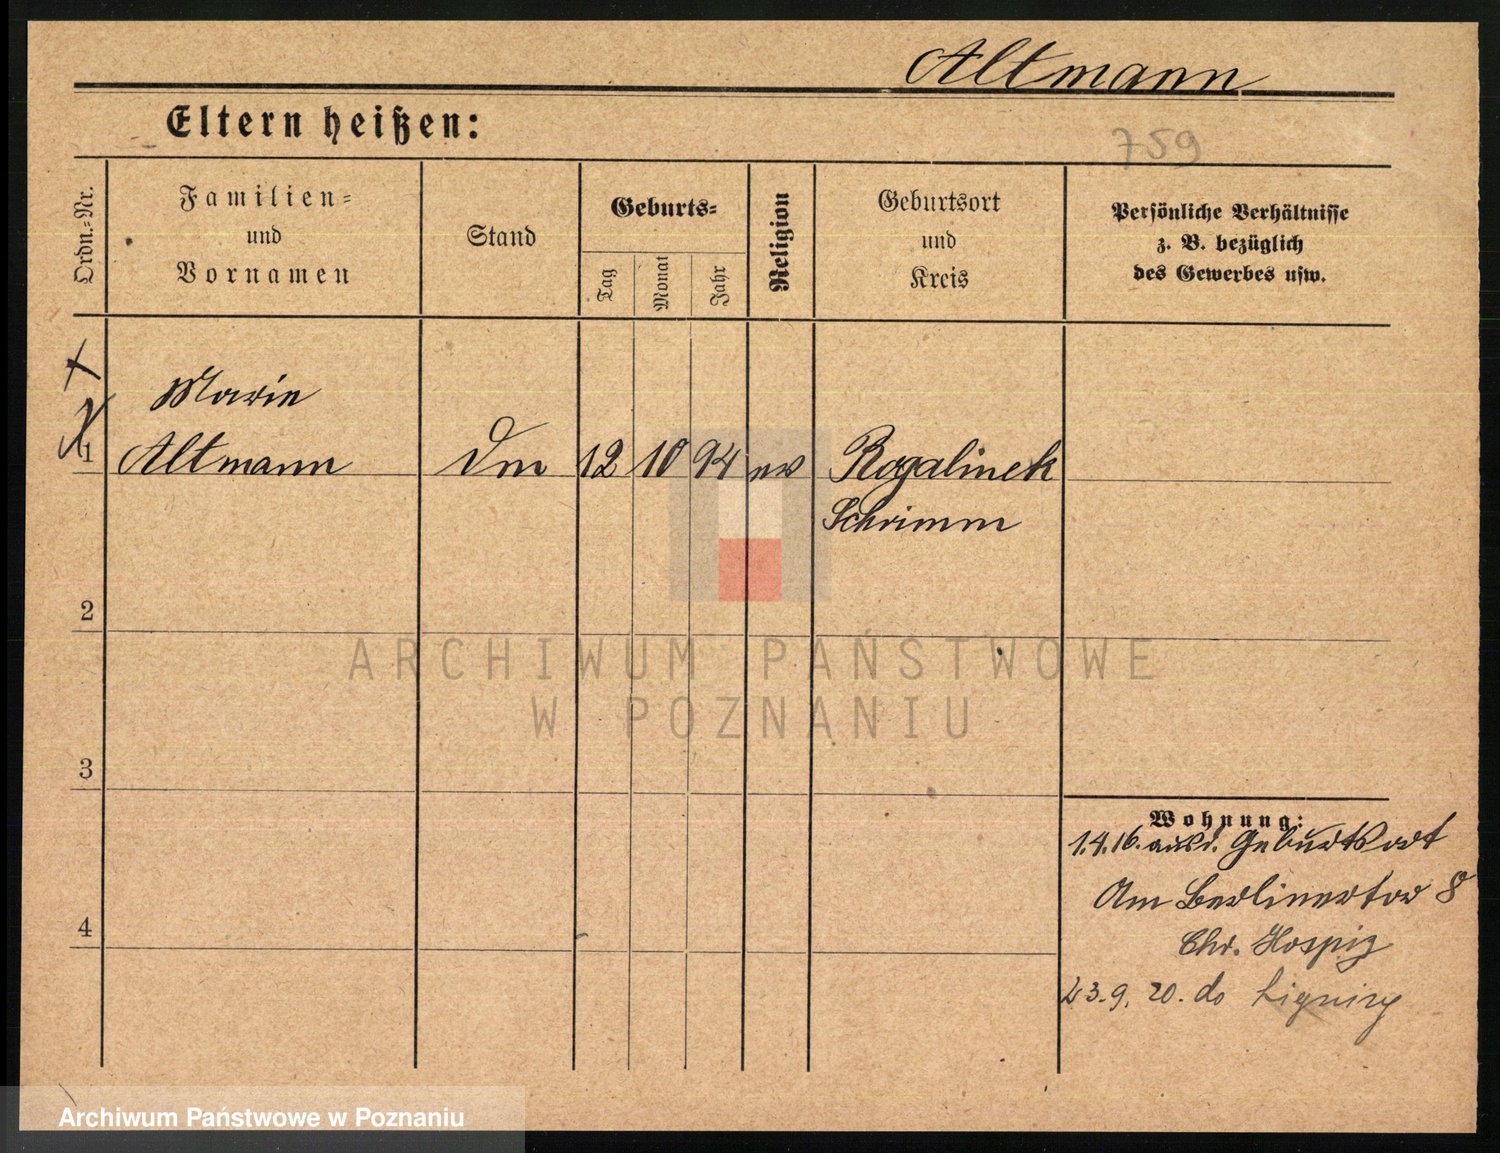 Altmann
Eltern heißen:
759
Ordn.-Nr.
Familien-
und
Vornamen
Stand
Geburts-
Tag
Monat
Jahr
Religion
Geburtsort
und
Kreis
Persönliche Verhältnisse
z. B. bezüglich
des Gewerbes usw.
Marie
1 Altmann Dm 12 10 94 ev Rogalinek
Schrimm
2
ARCHIWUM PAŃSTWOWE
W POZNANIU
3
Wohnung:
1.4.16. aus d. Geburtsort
Am Berlinertor 8
4
Chr. Hospiz
23.9.20. do
Archiwum Państwowe w Poznaniu